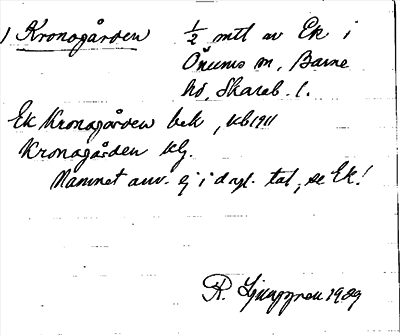 1 Kronogården 1/2 mtl av Ek i
Önums sn, Barne
hd, Skarab. l.
Ek Kronogården bek, kb 1911
Kronogården klj.
Namnet anv. ej i dagl. tal, se Ek!
R. Ljunggren 1909